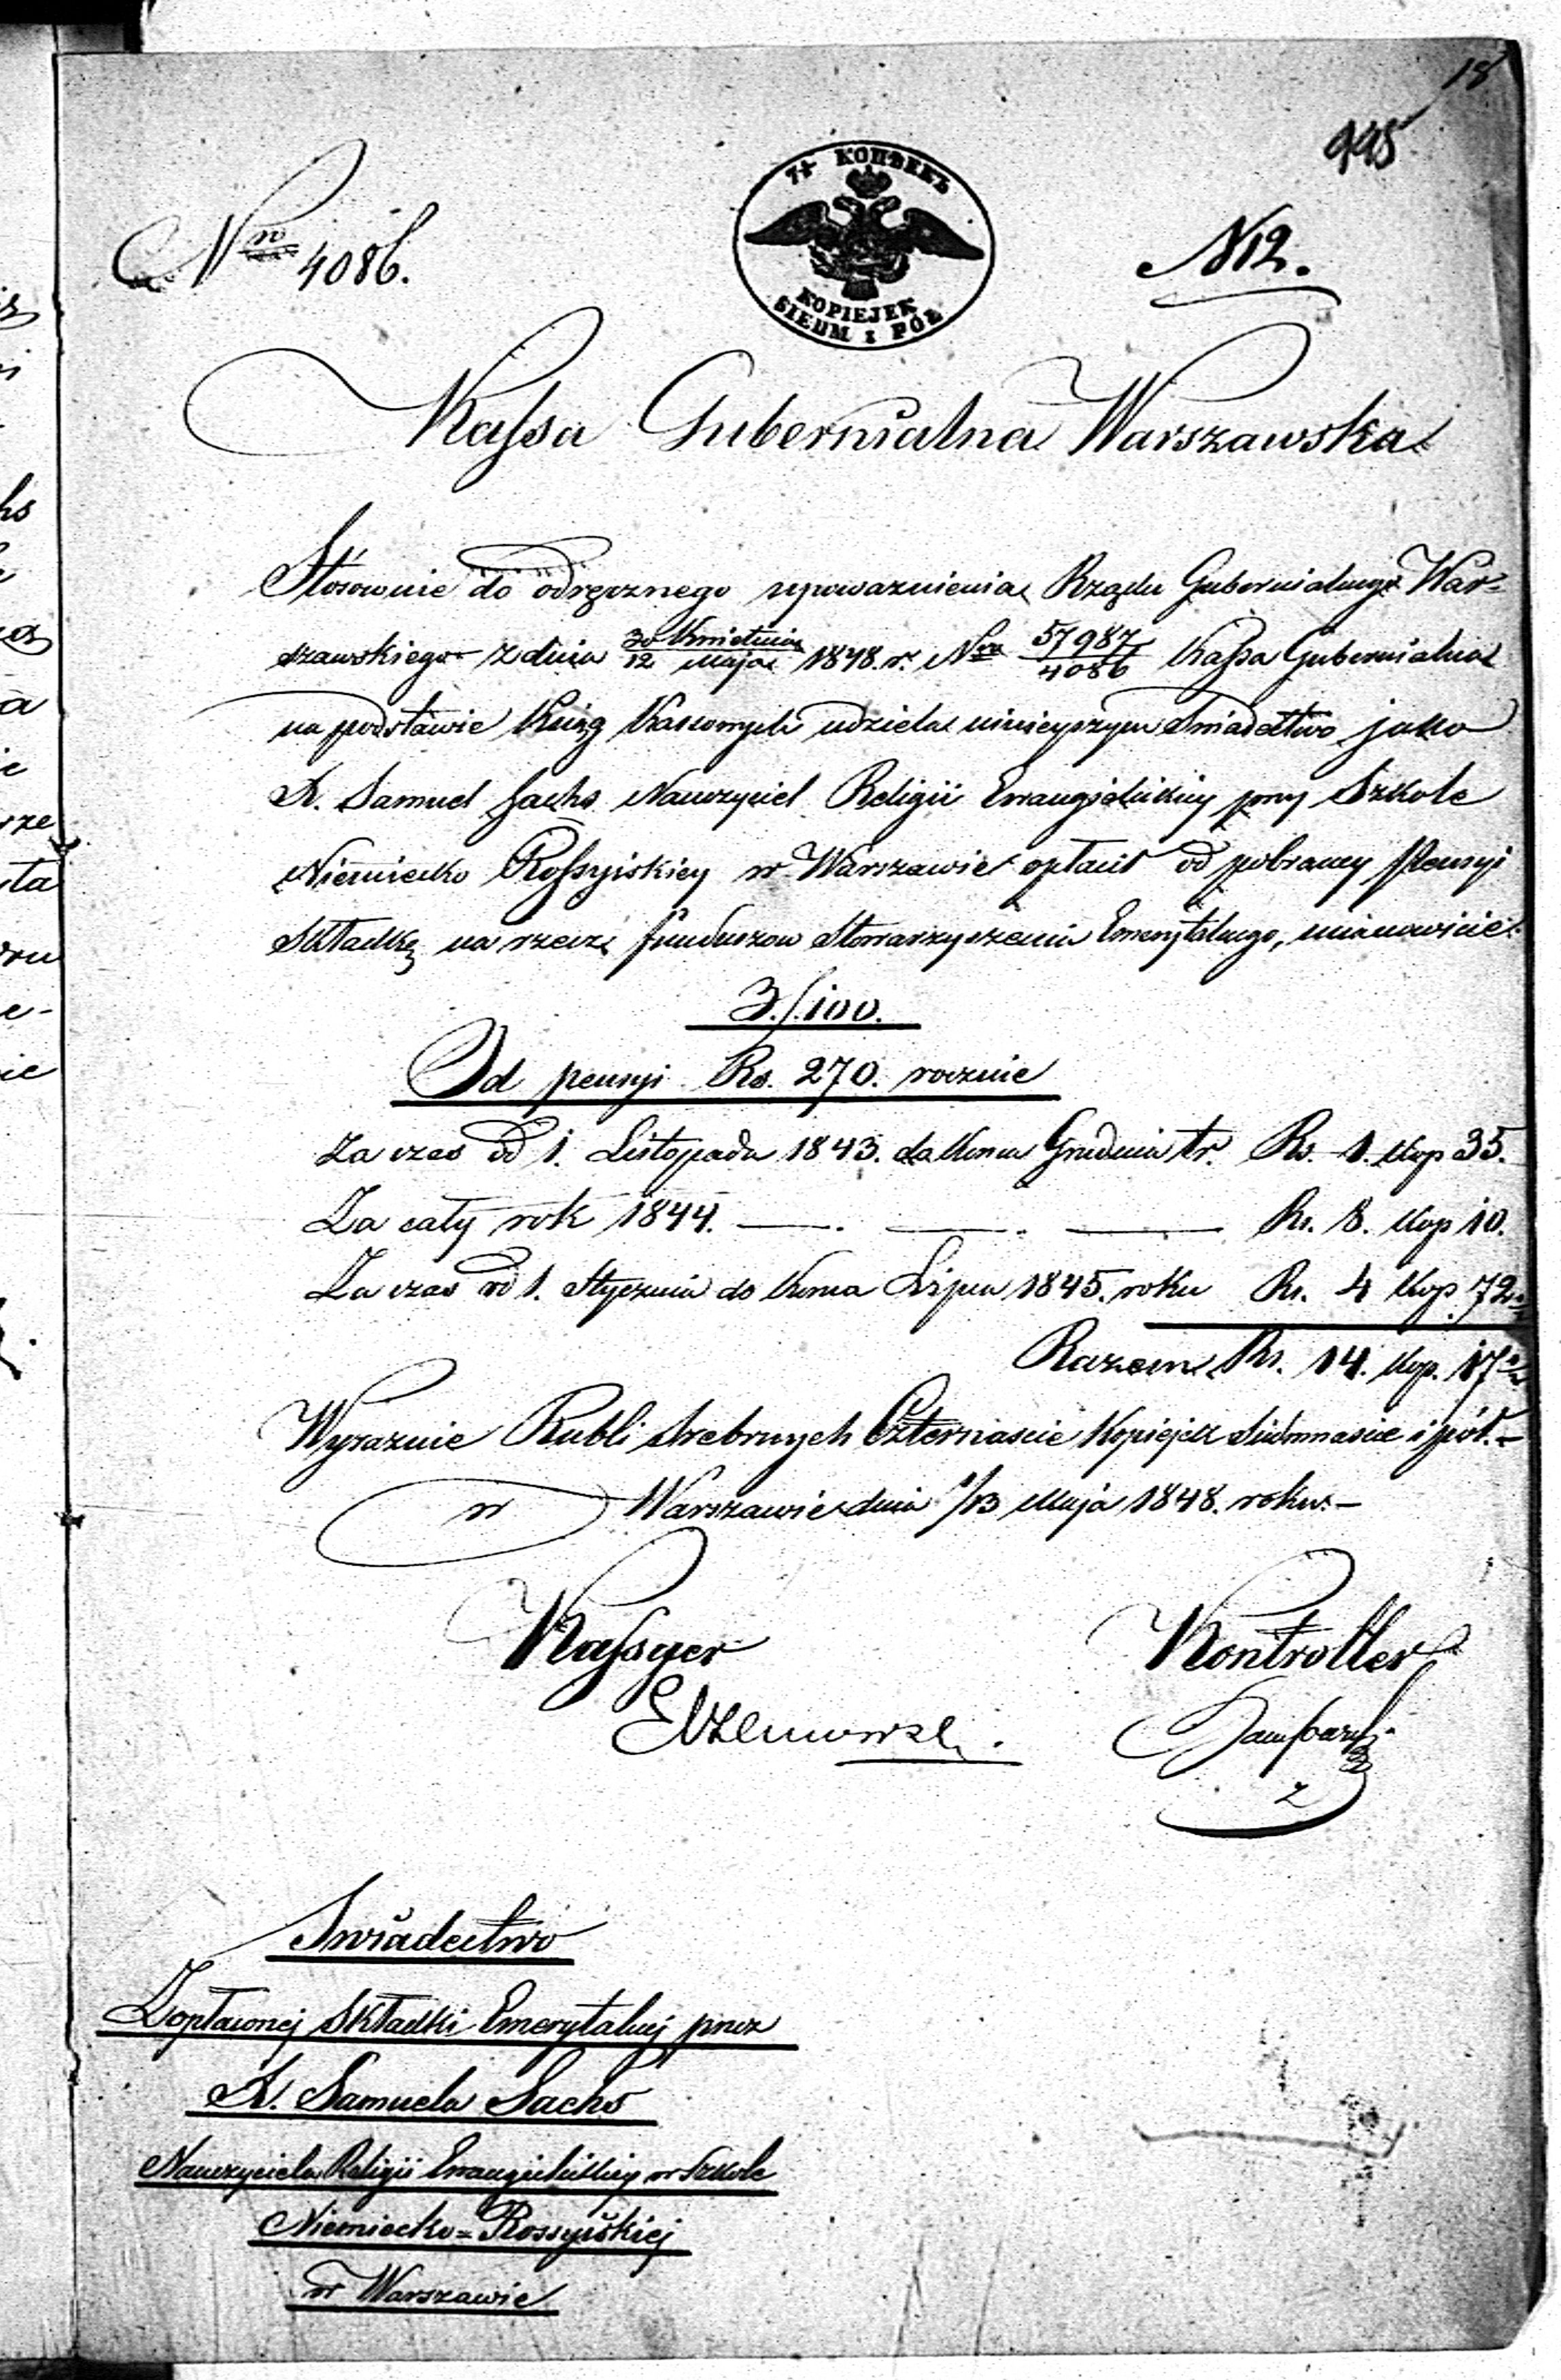 18
995
7½ КОПѢЕКЪ
KOPIEJEK
SIEDM I PÓŁ
Nro 4086.
N12.
Kassa Gubernialna Warszawska
Stósownie do odręcznego upoważnienia Rządu Gubernialnego War-
szawskiego z dnia 30 Kwietnia / 12 Maja 1848. r. Nro 57987/4086 Kassa Gubernialna
na podstawie Ksiąg Kassowych udziela ninieyszym Swiadectwo jako
X. Samuel Sachs Nauczyciel Religii Ewangielickiey przy Szkole
Niemiecko Rossyiskiey w Warszawie opłacił od pobraney Pensyi
Składkę na rzecz funduszow Stowarzyszenia Emerytalnego, mianowicie:
3./100.
Od pensyi Rs. 270. rocznie
Za czas od 1. Listopada 1843. do Konca Grudnia tr. Rs. 1. Kop 35.
Za cały rok 1844. —. —. — Rs. 8. Kop 10.
Za czas od 1. Stycznia do Konca Lipca 1845. roku Rs. 4 Kop. 72½
Razem Rs. 14. Kop. 17½
Wyraznie Rubli Srebrnych Czternascie Kopiejek Siedmnascie i pół.-
w Warszawie dnia 1/13 Maja 1848. roku.-
Kassyer
Kontroller
Swiadectwo
Zopłaconej Składki Emerytalnej przez
X. Samuela Sachs
Nauczyciela Religii Ewangielickiey w Szkole
Niemiecko-Rossyiskiej
w Warszawie